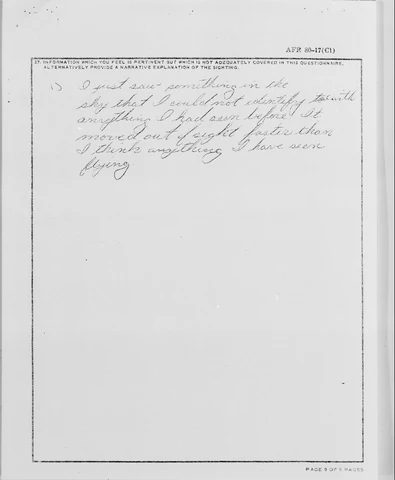 AFR 80-17(C1)
27. INFORMATION WHICH YOU FEEL IS PERTINENT BUT WHICH IS NOT ADEQUATELY COVERED IN THIS QUESTIONNAIRE. ALTERNATIVELY PROVIDE A NARRATIVE EXPLANATION OF THE SIGHTING.
I just saw something in the
sky that I could not identify with
anything I had seen before. It
moved out of sight faster than
I think anything I have seen
flying
PAGE 5 OF 5 PAGES